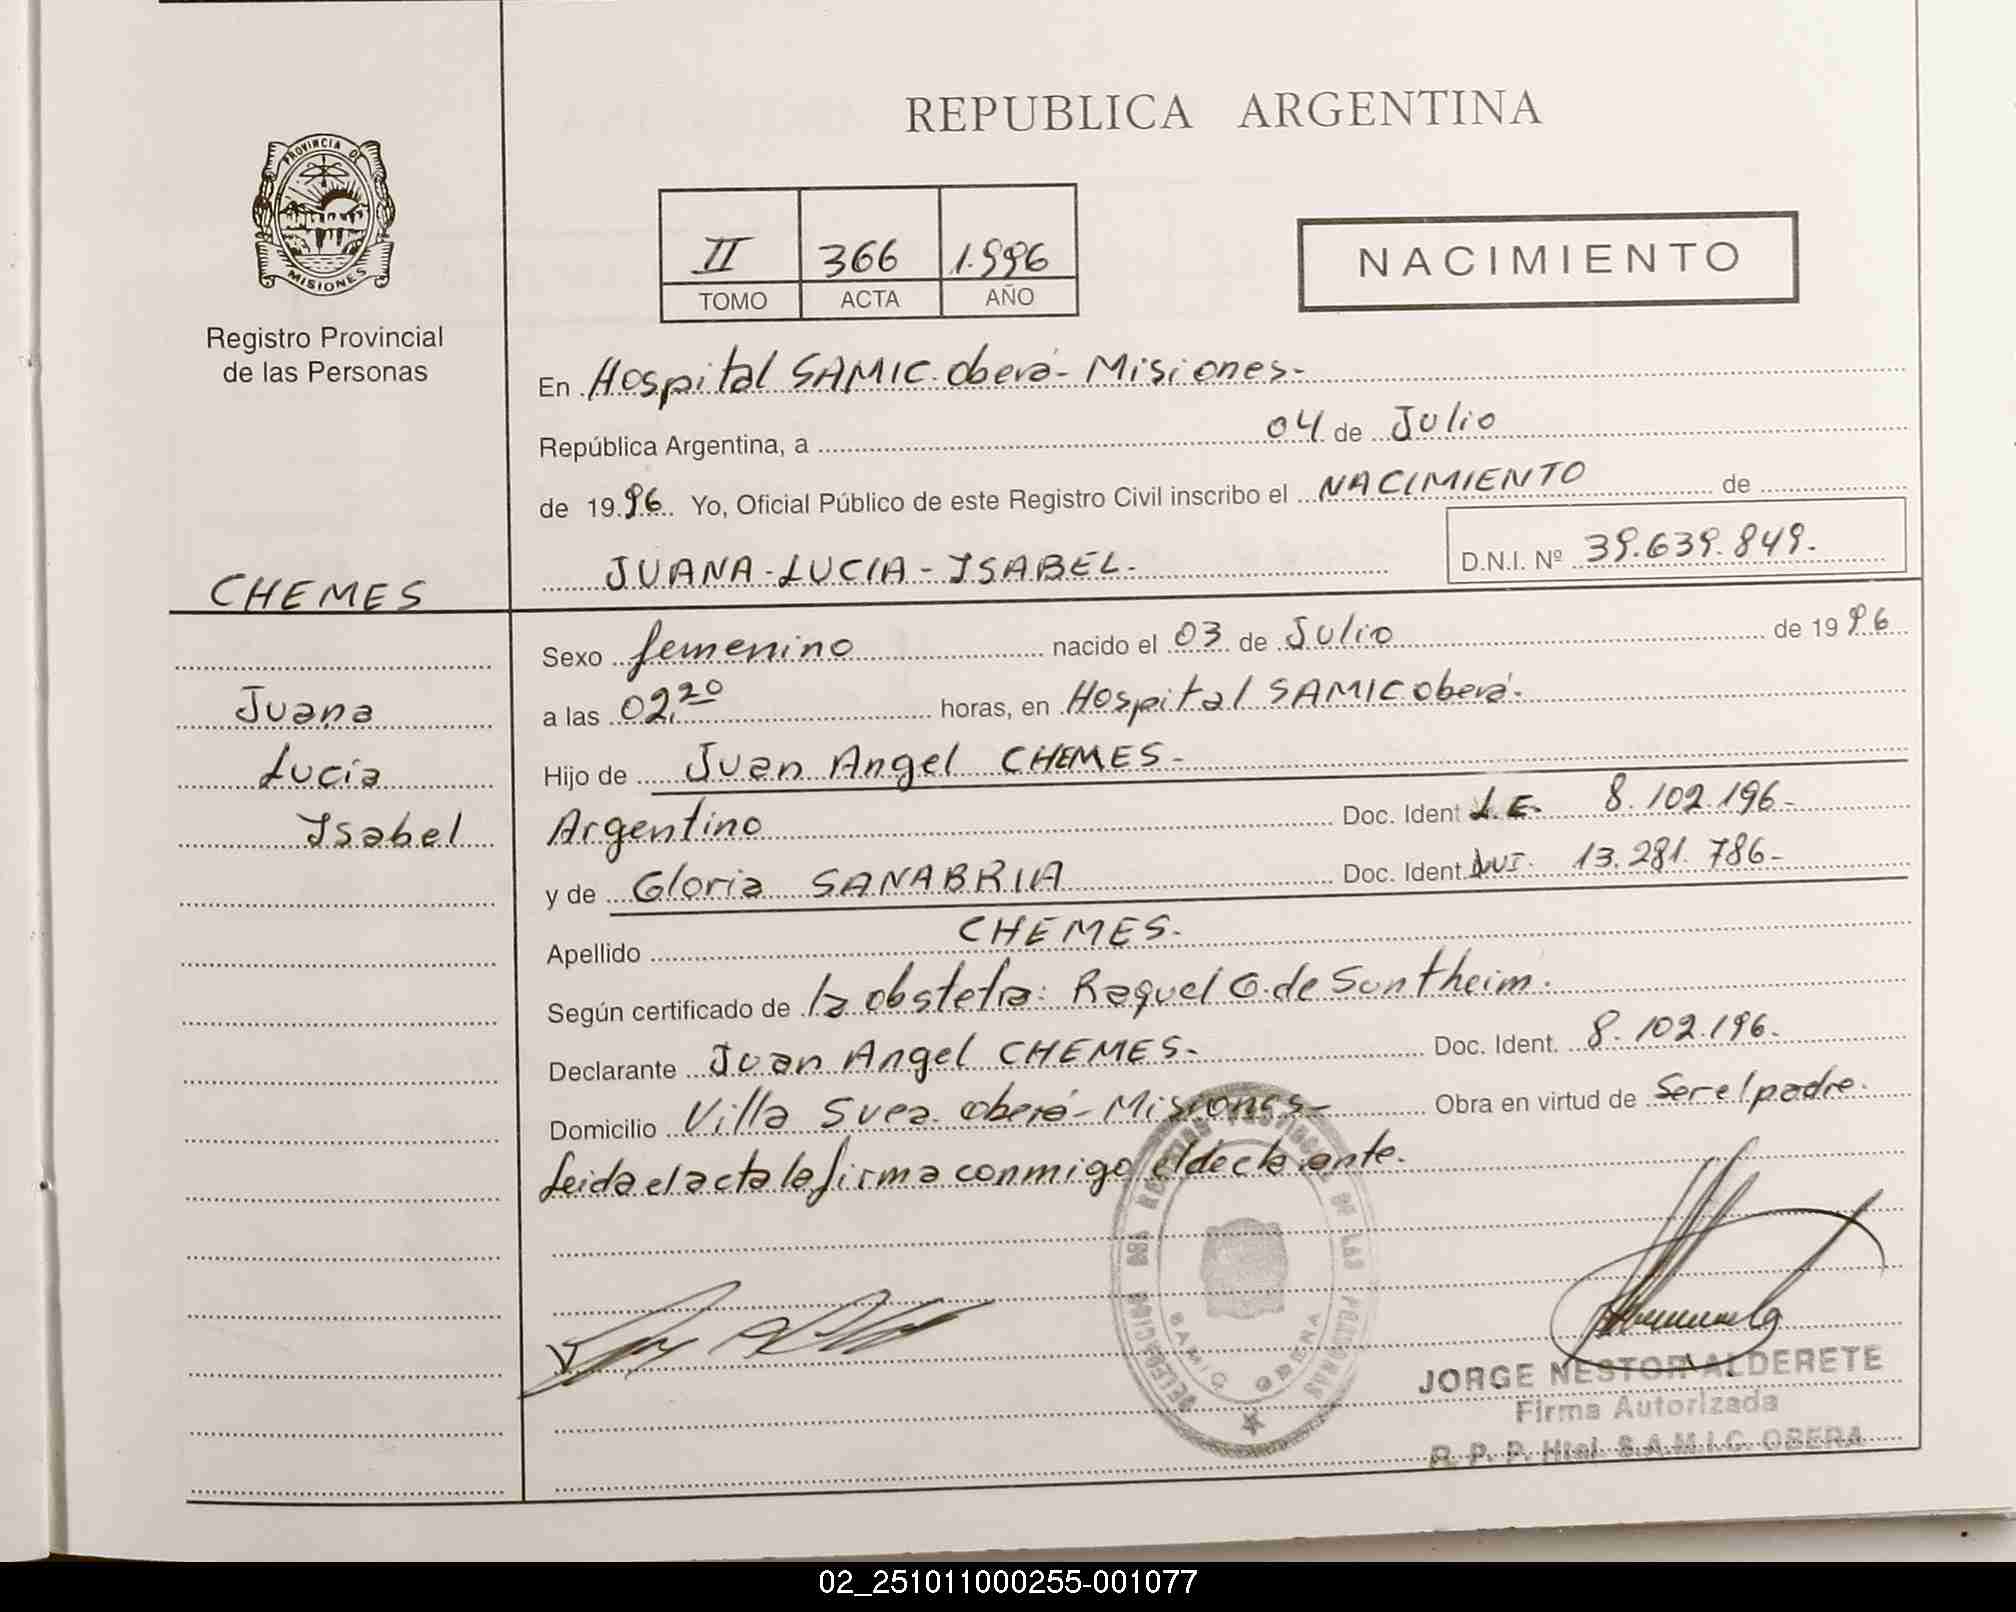 REPUBLICA ARGENTINA
PROVINCIA DE
MISIONES
Registro Provincial
de las Personas
II 366 1.996
TOMO ACTA AÑO
NACIMIENTO
En Hospital SAMIC. Oberá - Misiones-
República Argentina, a 04 de Julio
de 1996. Yo, Oficial Público de este Registro Civil inscribo el NACIMIENTO de
JUANA-LUCIA-ISABEL. D.N.I. Nº 39.639.849.
CHEMES
Juana
Lucia
Isabel
Sexo femenino nacido el 03 de Julio de 1996
a las 02.20 horas, en Hospital SAMIC Oberá.
Hijo de Juan Angel CHEMES-
Argentino Doc. Ident L.E. 8.102.196-
y de Gloria SANABRIA Doc. Ident. DNI. 13.281.786-
Apellido CHEMES.
Según certificado de la obstetra: Raquel G. de Suntheim.
Declarante Juan Angel CHEMES- Doc. Ident. 8.102.196.
Domicilio Villa Svea. Oberá - Misiones- Obra en virtud de Ser el padre.
Leida el acta la firma conmigo el declarante.
DELEGACION DEL REGISTRO PROVINCIAL DE LAS PERSONAS
SAMIC OBERA
JORGE NESTOR ALDERETE
Firma Autorizada
R. P. P. Htal. S.A.M.I.C. OBERA
02_251011000255-001077